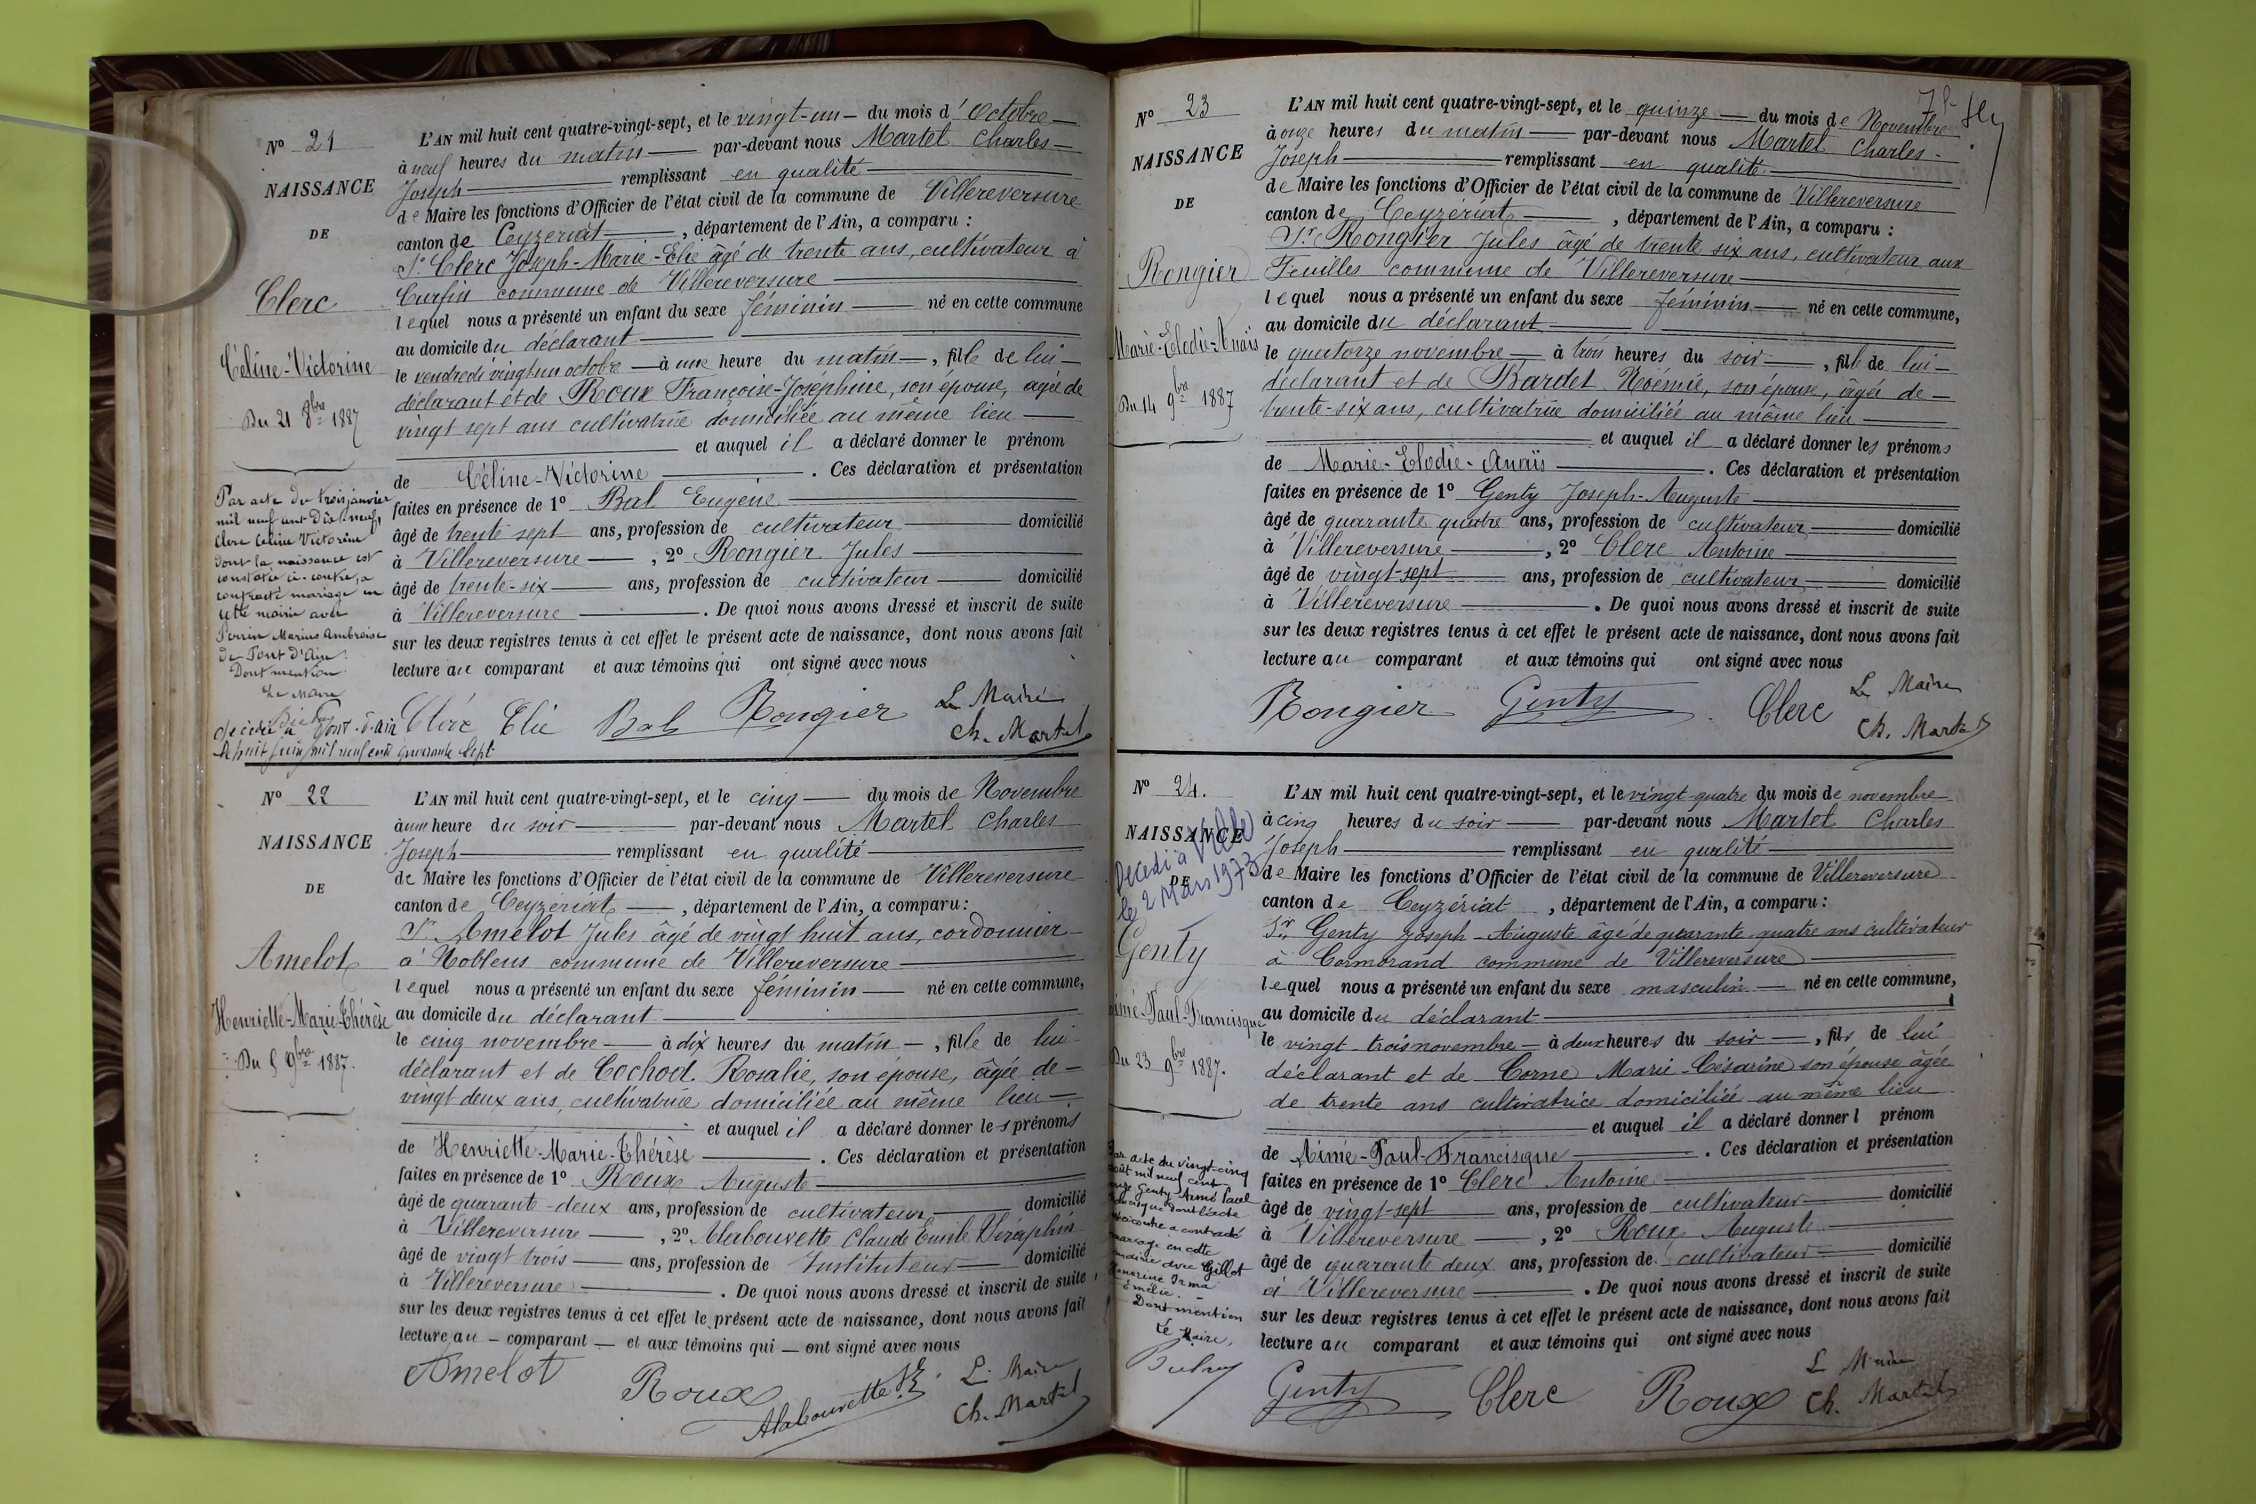 Nº 21
NAISSANCE
DE
Clerc
Céline-Victorine
Du 21 8bre 1887
L'AN mil huit cent quatre-vingt-sept, et le vingt-un du mois d'Octobre
à neuf heures du matin par-devant nous Martel Charles
Joseph remplissant en qualité
de Maire les fonctions d'Officier de l'état civil de la commune de Villereversure
canton de Ceyzériat, département de l'Ain, a comparu :
Sr Clerc Joseph-Marie-Elie âgé de trente ans, cultivateur à
Curfin commune de Villereversure
lequel nous a présenté un enfant du sexe féminin né en cette commune
au domicile du déclarant
le vendredi vingt un octobre à une heure du matin, fille de lui
déclarant et de Roux Françoise-Joséphine, son épouse, âgée de
vingt sept ans cultivatrice domiciliée au même lieu
et auquel il a déclaré donner le prénom
de Céline-Victorine. Ces déclaration et présentation
faites en présence de 1º Bal Eugène
âgé de trente sept ans, profession de cultivateur domicilié
à Villereversure, 2º Rongier Jules
âgé de trente-six ans, profession de cultivateur domicilié
à Villereversure. De quoi nous avons dressé et inscrit de suite
sur les deux registres tenus à cet effet le présent acte de naissance, dont nous avons fait
lecture au comparant et aux témoins qui ont signé avec nous
Clerc Elie Bal Rongier Le Maire
Ch. Martel
Par acte du trois janvier
mil neuf cent Dix-neuf,
Clerc Céline Victorine
dont la naissance est
constatée ci-contre, a
contracté mariage en
cette mairie avec
Perrin Marius Ambroise
de Pont d'Ain.
Dont mention
Le Maire
décédée à Pont-d'Ain
le huit juin mil neuf cent quarante sept
Nº 22
NAISSANCE
DE
Amelot
Henriette-Marie-Thérèse
Du 5 9bre 1887.
L'AN mil huit cent quatre-vingt-sept, et le cinq du mois de Novembre
à une heure du soir par-devant nous Martel Charles
Joseph remplissant en qualité
de Maire les fonctions d'Officier de l'état civil de la commune de Villereversure
canton de Ceyzeriat, département de l'Ain, a comparu :
Sr Amelot Jules âgé de vingt huit ans, cordonnier
à Noblens commune de Villereversure
lequel nous a présenté un enfant du sexe féminin né en cette commune,
au domicile du déclarant
le cinq novembre à dix heures du matin, fille de lui
déclarant et de Cochod Rosalie, son épouse, âgée de
vingt deux ans, cultivatrice domiciliée au même lieu
et auquel il a déclaré donner les prénoms
de Henriette-Marie-Thérèse. Ces déclaration et présentation
faites en présence de 1º Roux Auguste
âgé de quarante-deux ans, profession de cultivateur domicilié
à Villereversure, 2º Alabouvette Claude Emile Séraphin
âgé de vingt trois ans, profession de Instituteur domicilié
à Villereversure. De quoi nous avons dressé et inscrit de suite
sur les deux registres tenus à cet effet le présent acte de naissance, dont nous avons fait
lecture au comparant et aux témoins qui ont signé avec nous
Amelot Roux Alabouvette Le Maire
Ch. Martel
78
Nº 23
NAISSANCE
DE
Rongier
Marie-Elodie-Anaïs
Du 14 9bre 1887
L'AN mil huit cent quatre-vingt-sept, et le quinze du mois de Novembre
à onze heures du matin par-devant nous Martel Charles
Joseph remplissant en qualité
de Maire les fonctions d'Officier de l'état civil de la commune de Villereversure
canton de Ceyzériat, département de l'Ain, a comparu :
Sr Rongier Jules âgé de trente six ans, cultivateur aux
Feuilles commune de Villereversure
lequel nous a présenté un enfant du sexe féminin né en cette commune,
au domicile du déclarant
le quatorze novembre à trois heures du soir, fille de lui
déclarant et de Bardet Noémie, son épouse, âgée de
trente-six ans, cultivatrice domiciliée au même lieu
et auquel il a déclaré donner les prénoms
de Marie-Elodie-Anaïs. Ces déclaration et présentation
faites en présence de 1º Genty Joseph-Auguste
âgé de quarante quatre ans, profession de cultivateur domicilié
à Villereversure, 2º Clerc Antoine
âgé de vingt-sept ans, profession de cultivateur domicilié
à Villereversure. De quoi nous avons dressé et inscrit de suite
sur les deux registres tenus à cet effet le présent acte de naissance, dont nous avons fait
lecture au comparant et aux témoins qui ont signé avec nous
Rongier Genty Clerc Le Maire
Ch. Martel
Nº 24.
NAISSANCE
DE
Décédé à
le 2 Mars 1973
Genty
Aimé-Paul-Francisque
Du 23 9bre 1887.
L'AN mil huit cent quatre-vingt-sept, et le vingt-quatre du mois de novembre
à cinq heures du soir par-devant nous Martel Charles
Joseph remplissant en qualité
de Maire les fonctions d'Officier de l'état civil de la commune de Villereversure
canton de Ceyzériat, département de l'Ain, a comparu :
Sr Genty Joseph-Auguste âgé de quarante-quatre ans cultivateur
à Cormorand commune de Villereversure
lequel nous a présenté un enfant du sexe masculin né en cette commune,
au domicile du déclarant
le vingt-trois novembre à deux heures du soir, fils de lui
déclarant et de Corne Marie-Césarine son épouse âgée
de trente ans cultivatrice domiciliée au même lieu
et auquel il a déclaré donner l prénom
de Aimé-Paul-Francisque. Ces déclaration et présentation
faites en présence de 1º Clerc Antoine
âgé de vingt-sept ans, profession de cultivateur domicilié
à Villereversure, 2º Roux Auguste
âgé de quarante deux ans, profession de cultivateur domicilié
à Villereversure. De quoi nous avons dressé et inscrit de suite
sur les deux registres tenus à cet effet le présent acte de naissance, dont nous avons fait
lecture au comparant et aux témoins qui ont signé avec nous
Genty Clerc Roux Le Maire
Ch. Martel
Par acte du vingt-cinq
août mil neuf cent
onze Genty Aimé Paul
Francisque dont l'acte
ci-contre a contracté
mariage en cette
mairie avec Gillot
Irma
Emélie.
Dont mention
Le Maire,